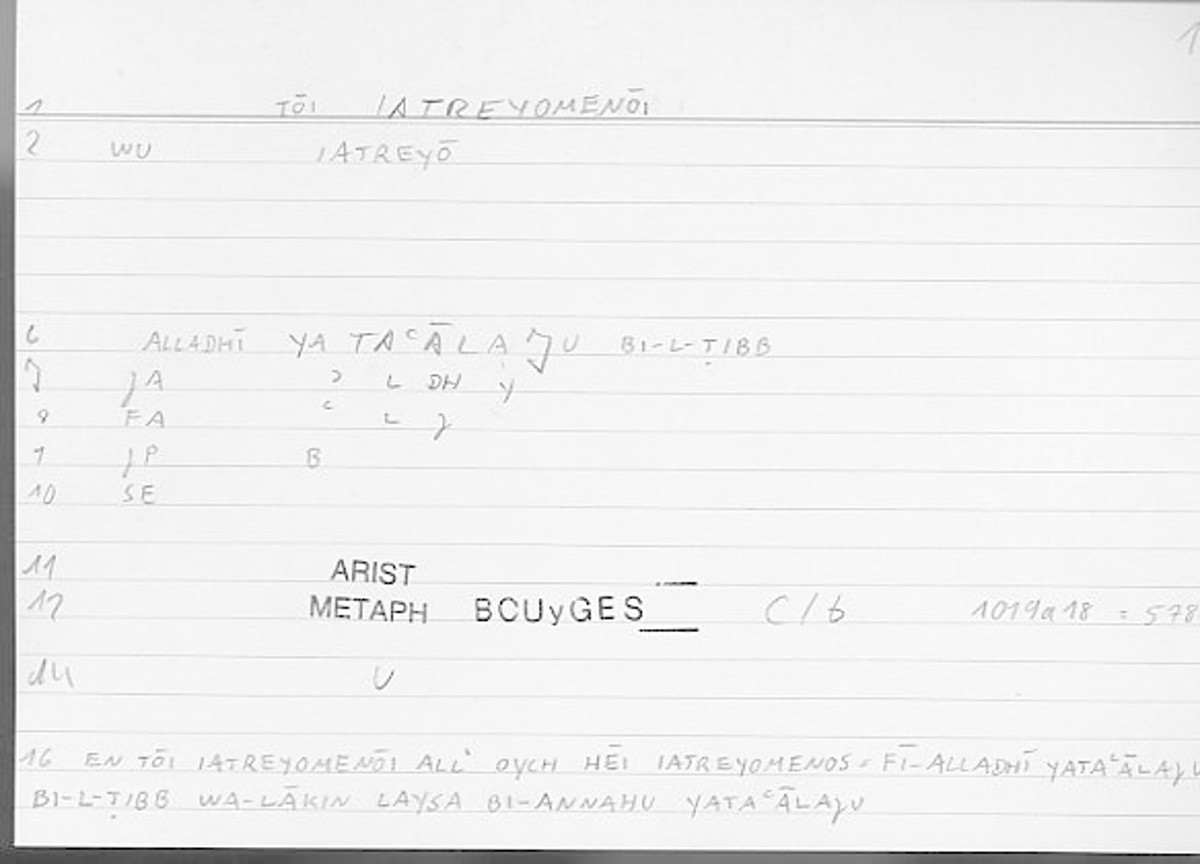 1
1 TŌI IATREYOMENŌI
2 WU IATREYŌ
6 ALLADHĪ YA TAʿĀLAJU BI-L-ṬIBB
7 JA ʾ L DH Y
8 FA ʿ L J
9 JP B
10 SE
11 ARIST
12 METAPH BCUyGES C/6 1019a18 = 578
14 U
16 EN TŌI IATREYOMENŌI ALL' OYCH HĒI IATREYOMENOS = FĪ-ALLADHĪ YATAʿĀLAJU
BI-L-ṬIBB WA-LĀKIN LAYSA BI-ANNAHU YATAʿĀLAJU